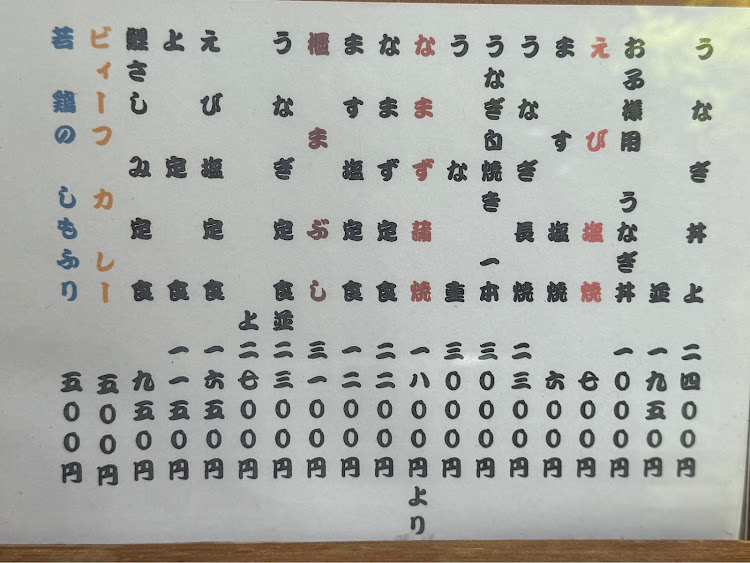 うなぎ丼 上 二四〇〇円
並 一九五〇円
お子様用 うなぎ丼 一〇〇〇円
えび塩焼 七〇〇円
ます塩焼 六〇〇円
うなぎ長焼 二三〇〇円
うなぎ白焼き 一本 三〇〇〇円
うな重 三〇〇〇円
なまず蒲焼 一八〇〇円より
なまず定食 二二〇〇円
ます塩定食 一二〇〇円
櫃まぶし 三一〇〇円
うなぎ定食 並 二三〇〇円
上 二七〇〇円
えび塩定食 一六五〇円
よ定食 一一五〇円
鯉さしみ定食 九五〇円
ビィーフ カレー 五〇〇円
若鶏の しもふり 五〇〇円